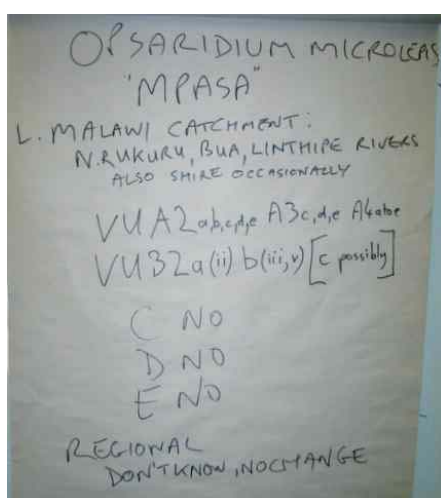 OPSARIDIUM MICROLEPIS
"MPASA"
L. MALAWI CATCHMENT:
N.RUKURU, BUA, LINTHIPE RIVERS
ALSO SHIRE OCCASIONALLY
VU A2 a,b,c,d,e A3 c,d,e
VU B2a(ii) b(iii,v) [c possibly]
C NO
D NO
E NO
REGIONAL
DON'T KNOW, NO CHANGE